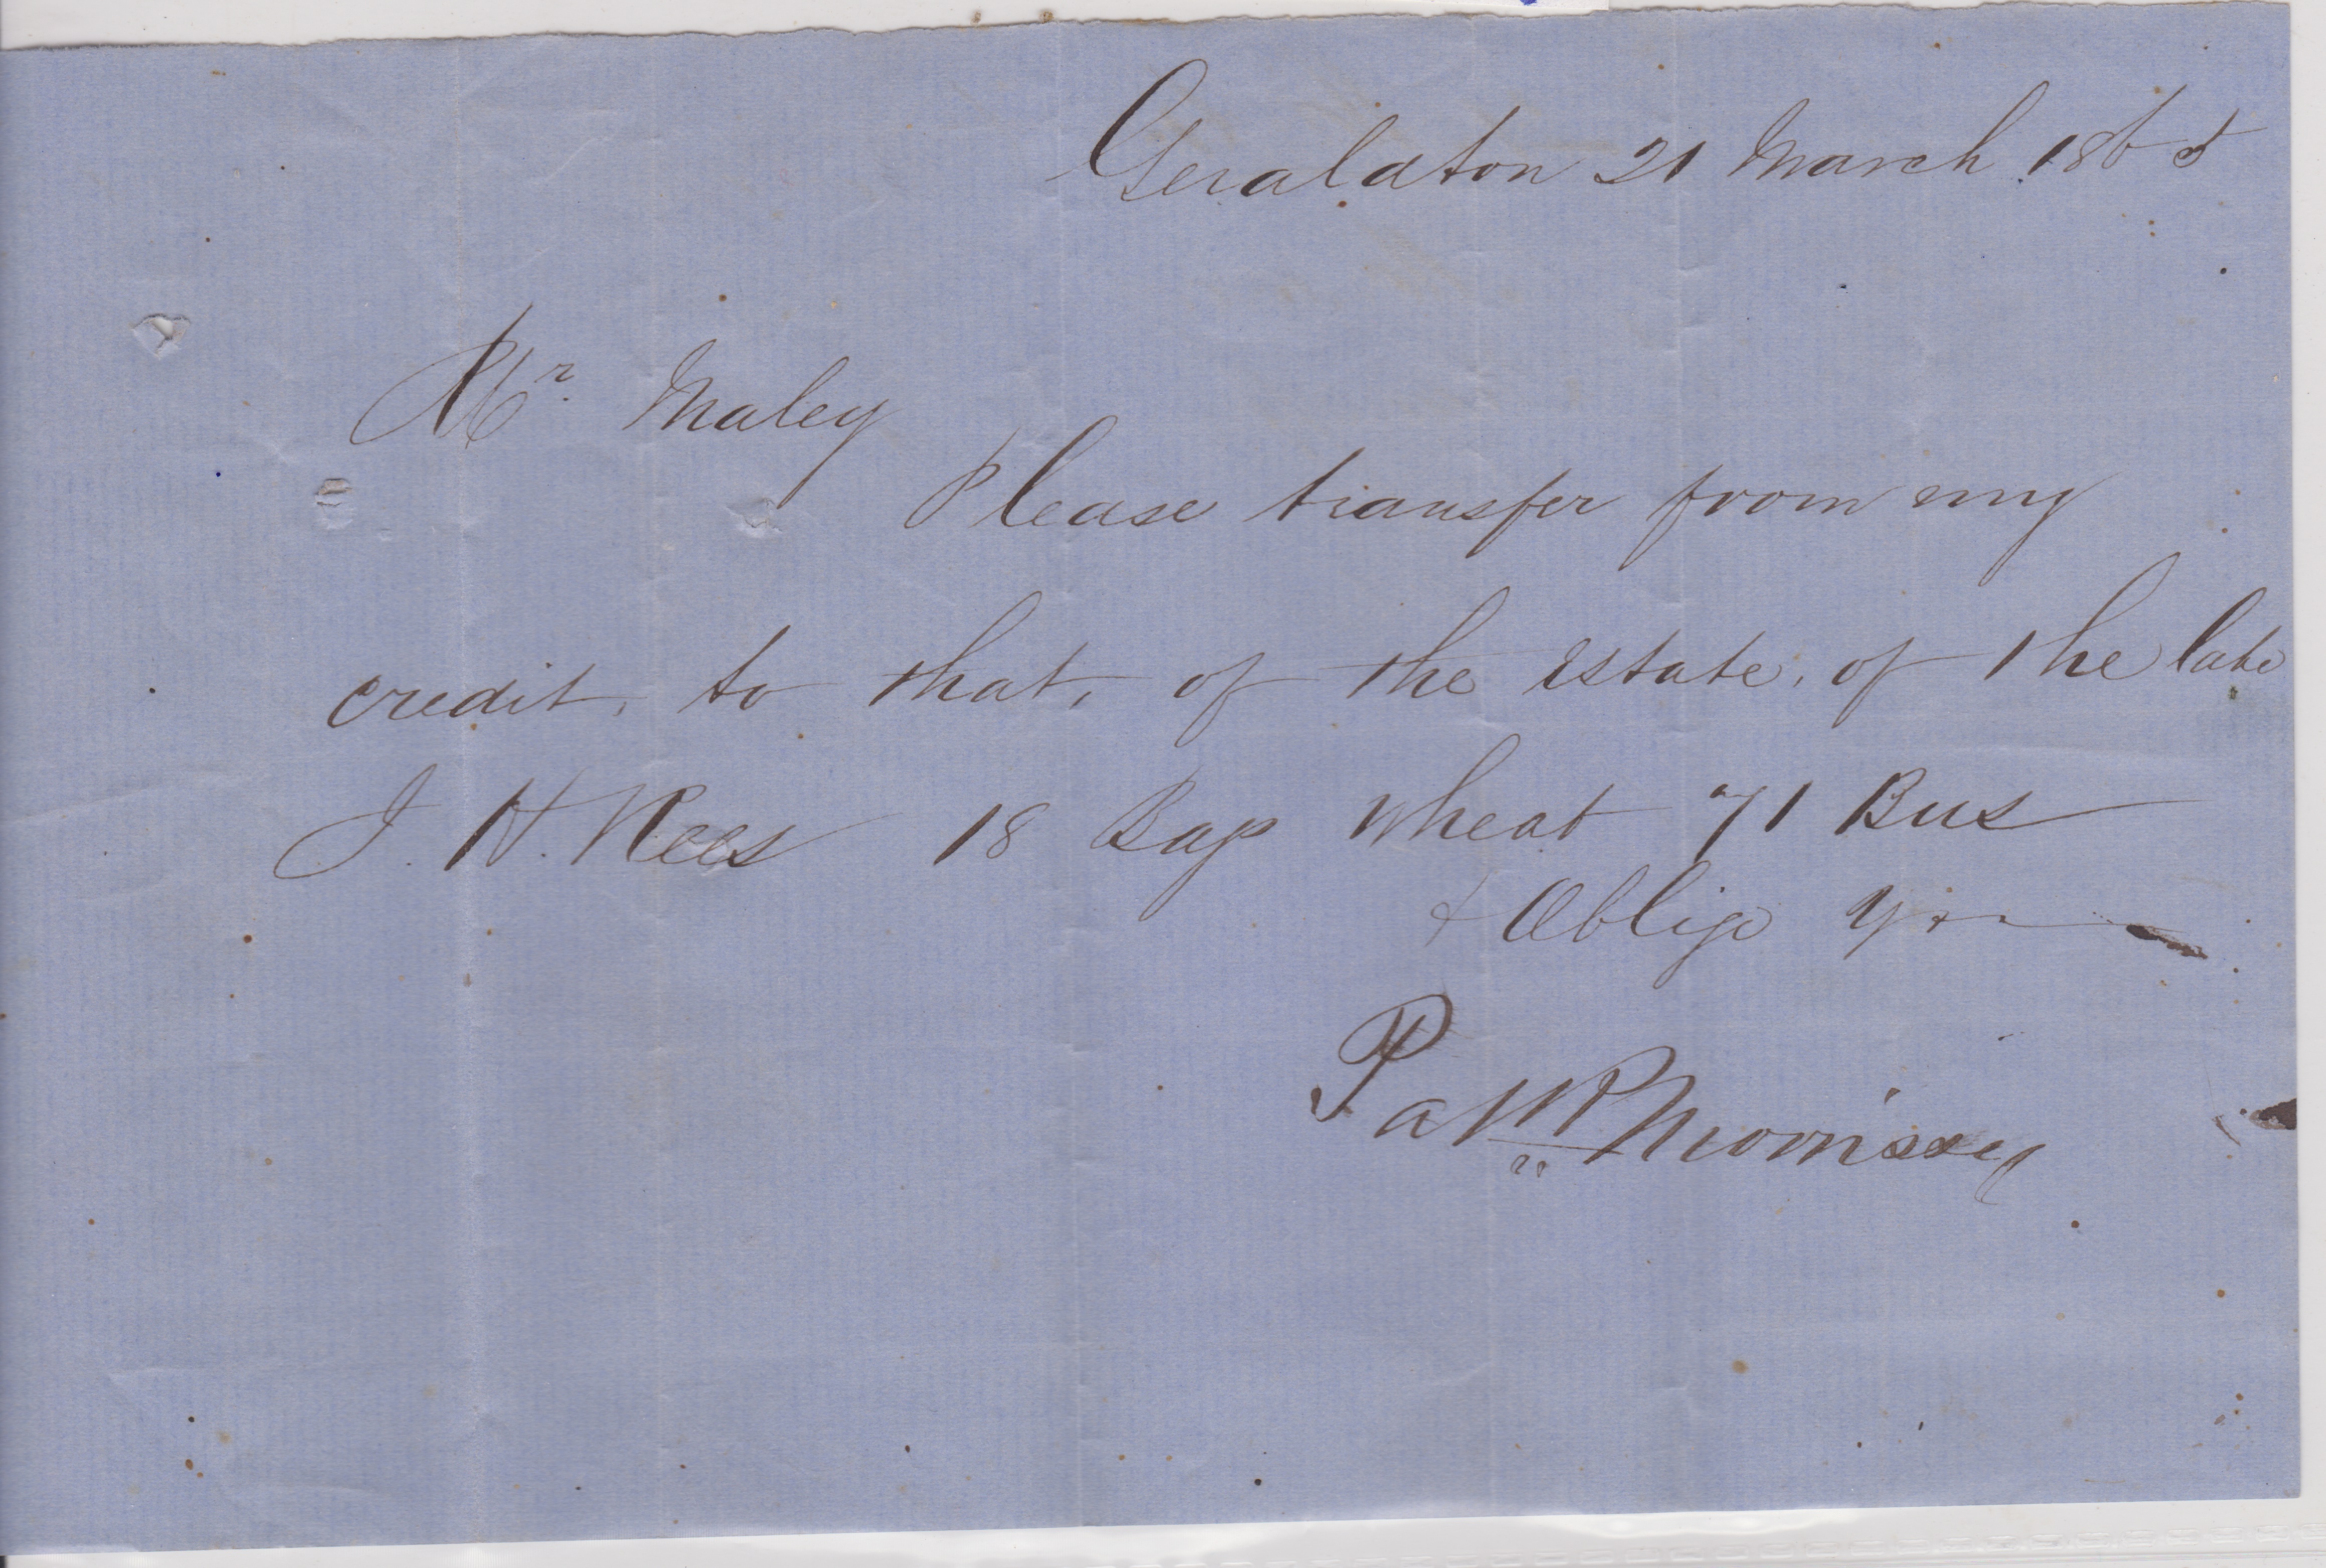 Geraldton 21 March 1865
Mr. Maley
Please transfer from my
credit, to that, of the Estate, of the late
J. H. Rees 18 Bags wheat 71 Bus
& Oblige Yrs
Pattk Morrissey